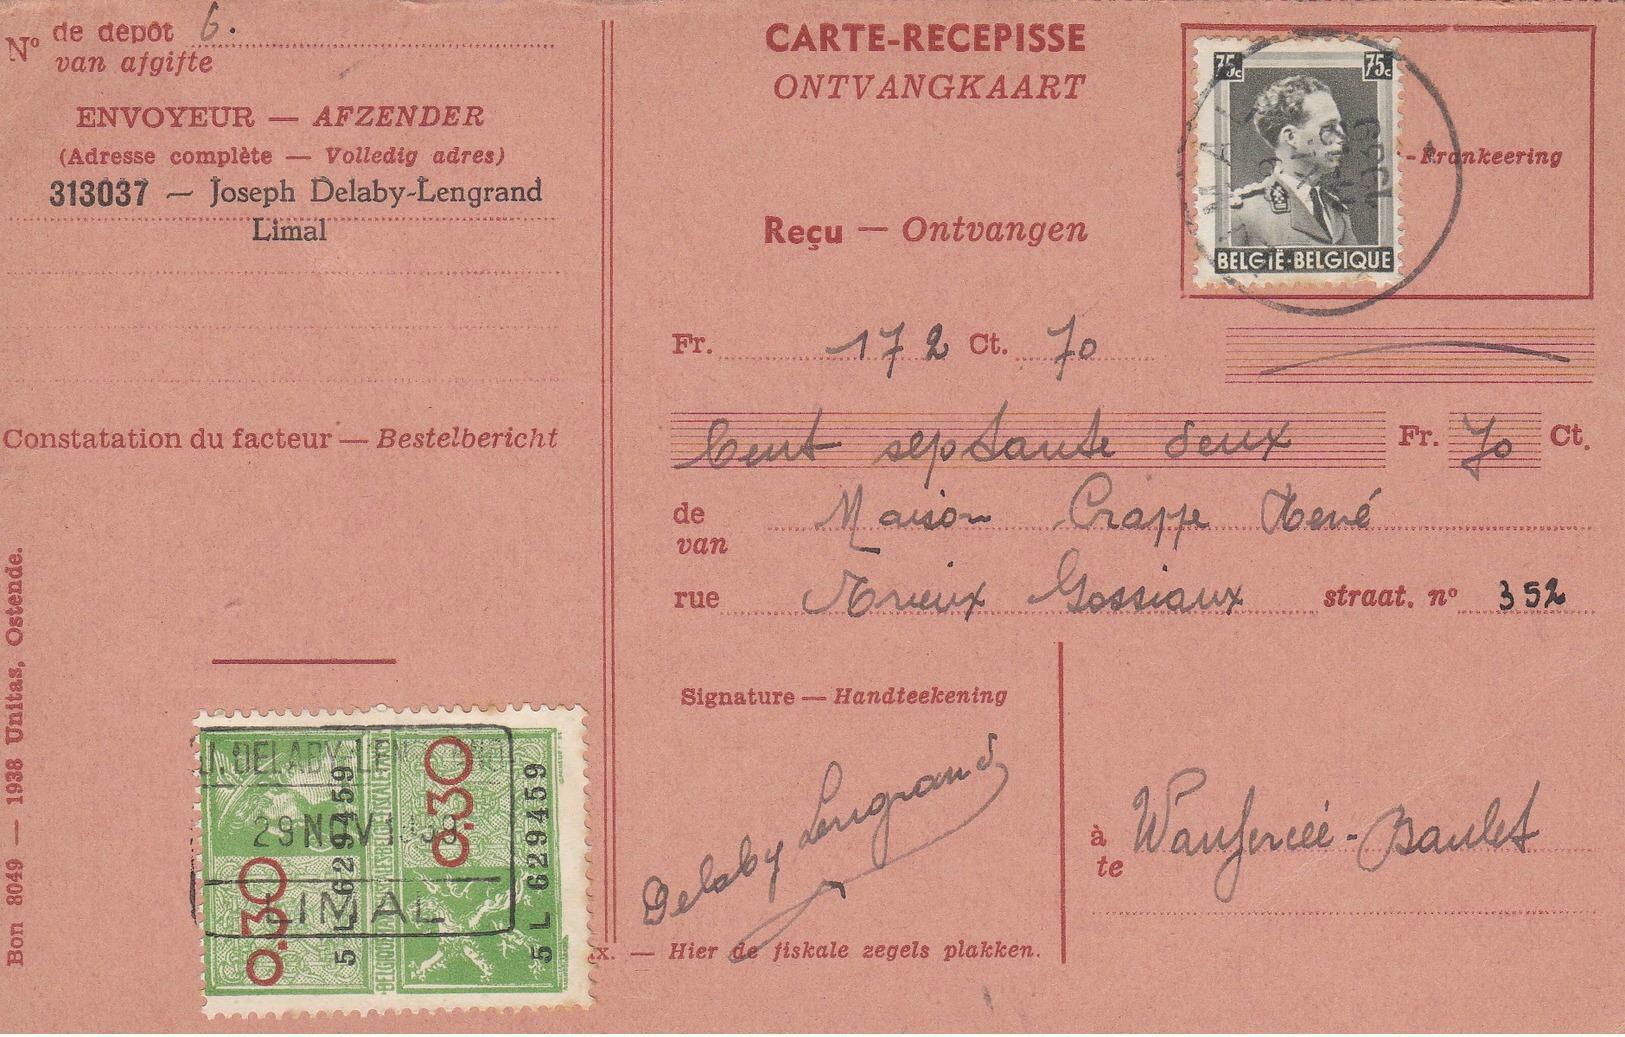 Nº de depôt 6.
van afgifte
ENVOYEUR — AFZENDER
(Adresse complète — Volledig adres)
313037 — Joseph Delaby-Lengrand
Limal
Constatation du facteur — Bestelbericht
Bon 8049 — 1938 Unitas, Ostende.
J. DELABY
29 NOV
LIMAL
0.30
0.30
5 L 629459
5 L 629459
CARTE-RECEPISSE
ONTVANGKAART
75c 75c
BELGIË-BELGIQUE
-Frankeering
Reçu — Ontvangen
Fr. 172 Ct. 70
Cent septante deux Fr. 70 Ct.
de Maison Crappe René
van
rue Trieux Gossiaux straat. nº 352
Signature — Handteekening
Delaby Lengrand
à Wanfercée-Baulet
te
x. — Hier de fiskale zegels plakken.